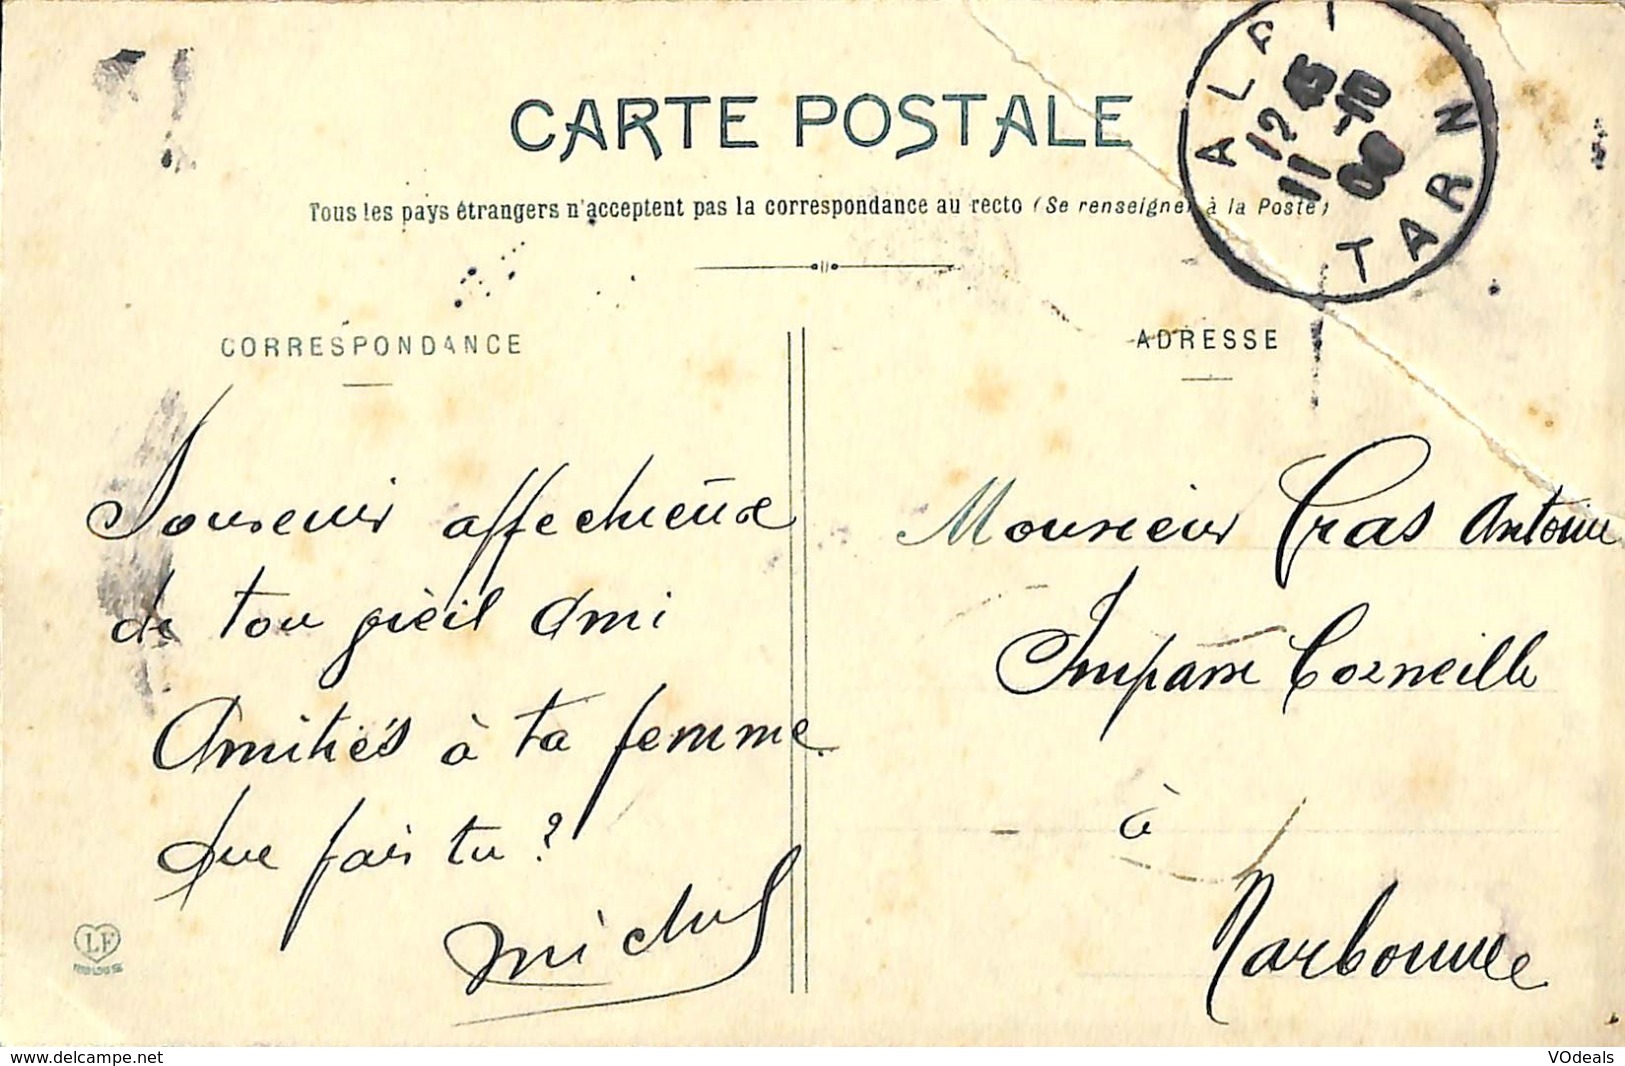 CARTE POSTALE
Tous les pays étrangers n'acceptent pas la correspondance au recto (Se renseigner à la Poste)
ALB
TARN
12 45
11 -10
06
CORRESPONDANCE
ADRESSE
Souvenir affectueux
de ton vieil ami
Amitiés à ta femme
Que fais tu ?
Michel
Monsieur Cras Antoine
Impasse Corneille
à
Narbonne
LF
TOULOUSE
www.delcampe.net
VOdeals